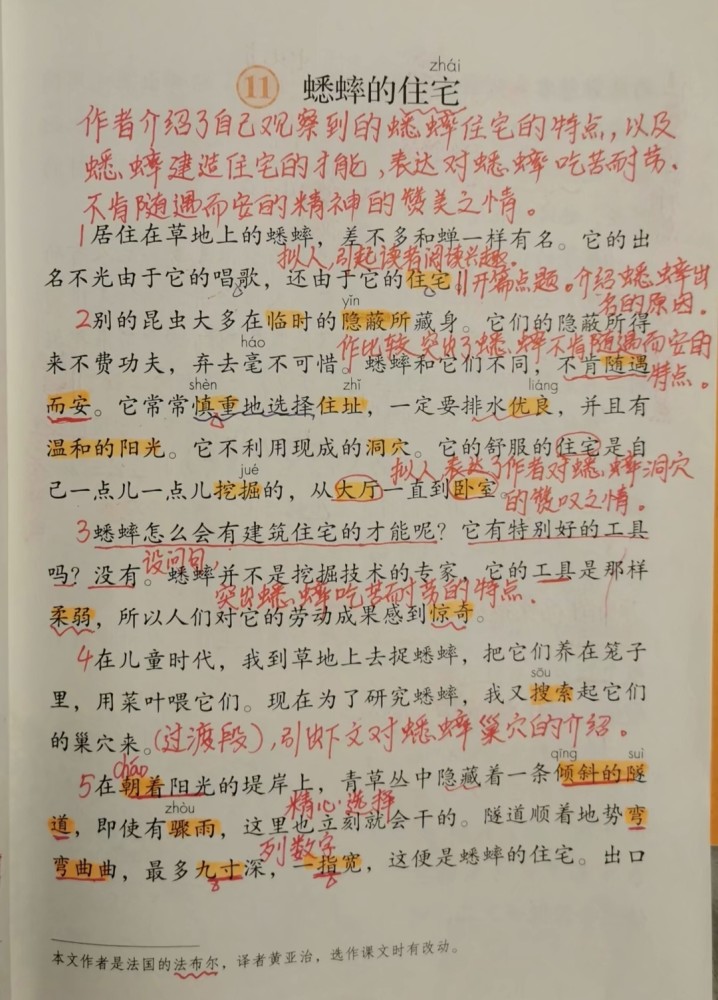 zhái
11 蟋蟀的住宅
作者介绍了自己观察到的蟋蟀住宅的特点,以及
蟋蟀建造住宅的才能,表达对蟋蟀吃苦耐劳、
不肯随遇而安的精神的赞美之情。
1居住在草地上的蟋蟀，差不多和蝉一样有名。它的出
拟人 引起读者阅读兴趣。
名不光由于它的唱歌，还由于它的住宅。
//开篇点题。介绍蟋蟀出
名的原因。
yǐn
2别的昆虫大多在临时的隐蔽所藏身。它们的隐蔽所得
háo
作比较 突出了蟋蟀不肯随遇而安的
特点。
来不费功夫，弃去毫不可惜。蟋蟀和它们不同，不肯随遇
shèn zhǐ liáng
而安。它常常慎重地选择住址，一定要排水优良，并且有
温和的阳光。它不利用现成的洞穴。它的舒服的住宅是自
jué
拟人 表达了作者对蟋蟀洞穴
的赞叹之情。
己一点儿一点儿挖掘的，从大厅一直到卧室。
3蟋蟀怎么会有建筑住宅的才能呢？它有特别好的工具
设问句，
吗？没有。蟋蟀并不是挖掘技术的专家，它的工具是那样
突出蟋蟀吃苦耐劳的特点.
柔弱，所以人们对它的劳动成果感到惊奇。
4在儿童时代，我到草地上去捉蟋蟀，把它们养在笼子
sōu
里，用菜叶喂它们。现在为了研究蟋蟀，我又搜索起它们
的巢穴来。(过渡段),引出下文对蟋蟀巢穴的介绍。
cháo qīng suì
5在朝着阳光的堤岸上，青草丛中隐藏着一条倾斜的隧
zhòu
精心选择
道，即使有骤雨，这里也立刻就会干的。隧道顺着地势弯
列数字
弯曲曲，最多九寸深，一指宽，这便是蟋蟀的住宅。出口
本文作者是法国的法布尔，译者黄亚治，选作课文时有改动。